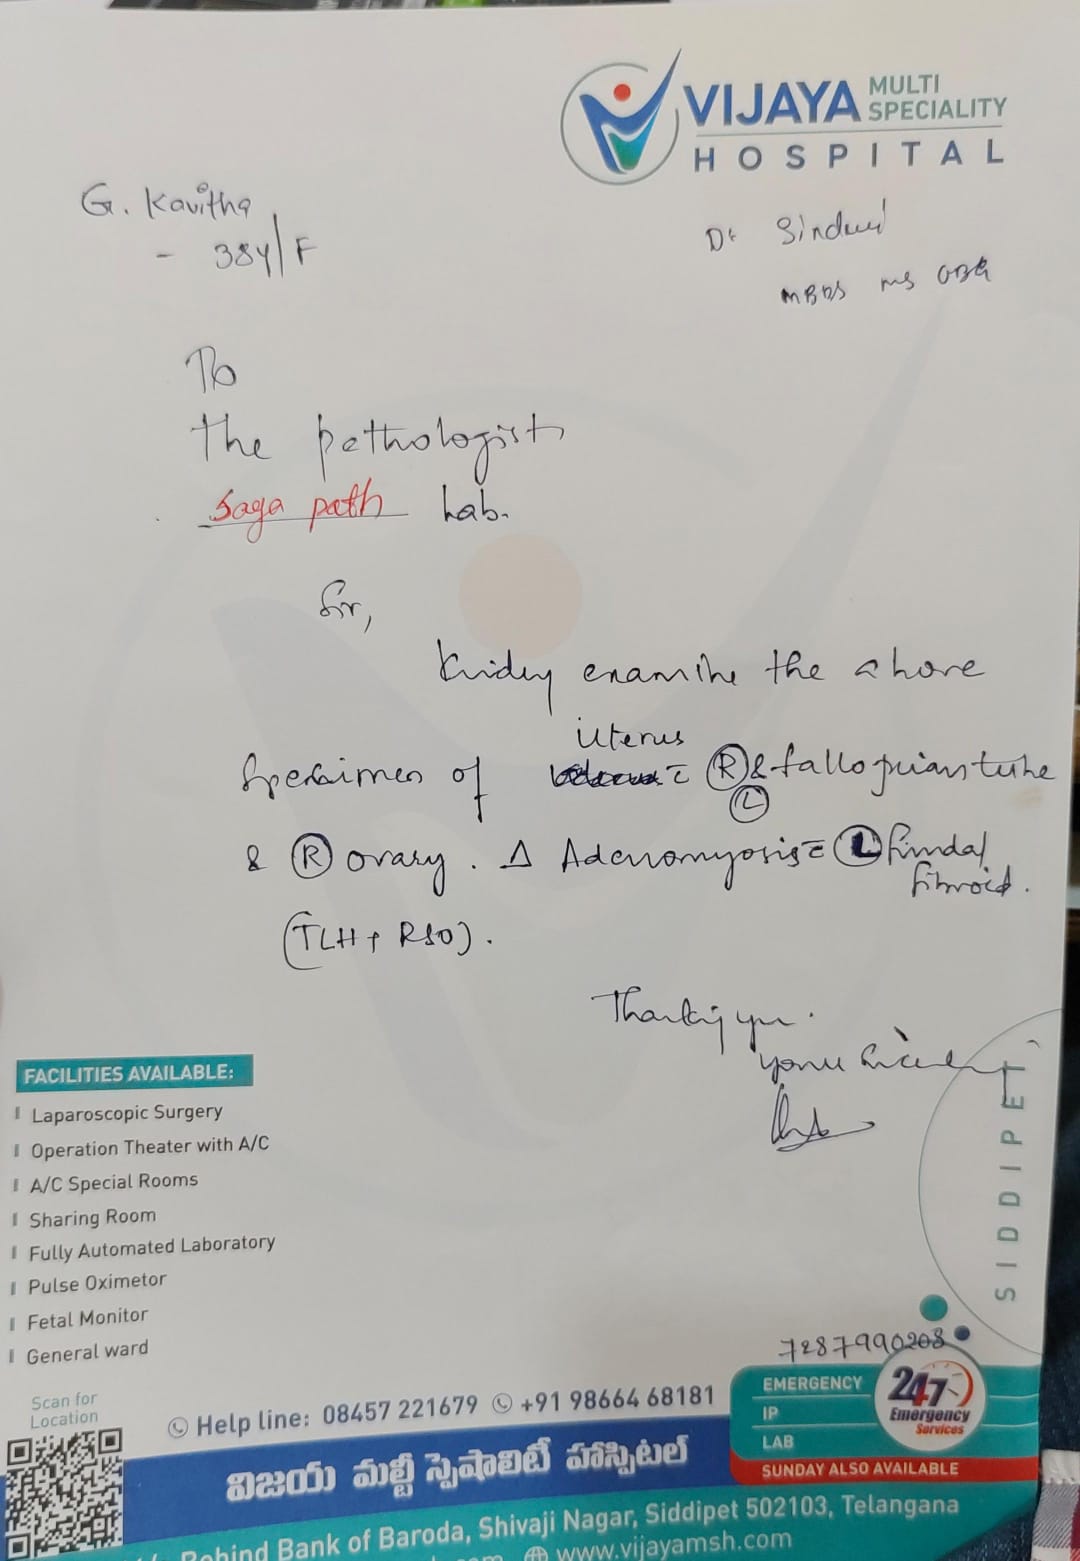 VIJAYA MULTI SPECIALITY
HOSPITAL
G. Kavitha
- 38Y/F
Dr Sindhu
MBBS MS OBG
To
The pathologist
Saga path Lab.
Sir,
Kindly examine the above
Specimen of uterus c̄ Ⓡ & Ⓛ fallopian tube
& Ⓡ ovary. Δ Adenomyosis c̄ Ⓛ fundal
fibroid.
(TLH + RSO).
Thanking you.
yours sincerely
FACILITIES AVAILABLE:
Laparoscopic Surgery
Operation Theater with A/C
A/C Special Rooms
Sharing Room
Fully Automated Laboratory
Pulse Oximetor
Fetal Monitor
General ward
SIDDIPET
7287990208
Scan for
Location
Help line: 08457 221679 +91 98664 68181
EMERGENCY
IP
LAB
24/7
Emergency
Services
SUNDAY ALSO AVAILABLE
విజయ మల్టీ స్పెషాలిటీ హాస్పిటల్
Behind Bank of Baroda, Shivaji Nagar, Siddipet 502103, Telangana
www.vijayamsh.com